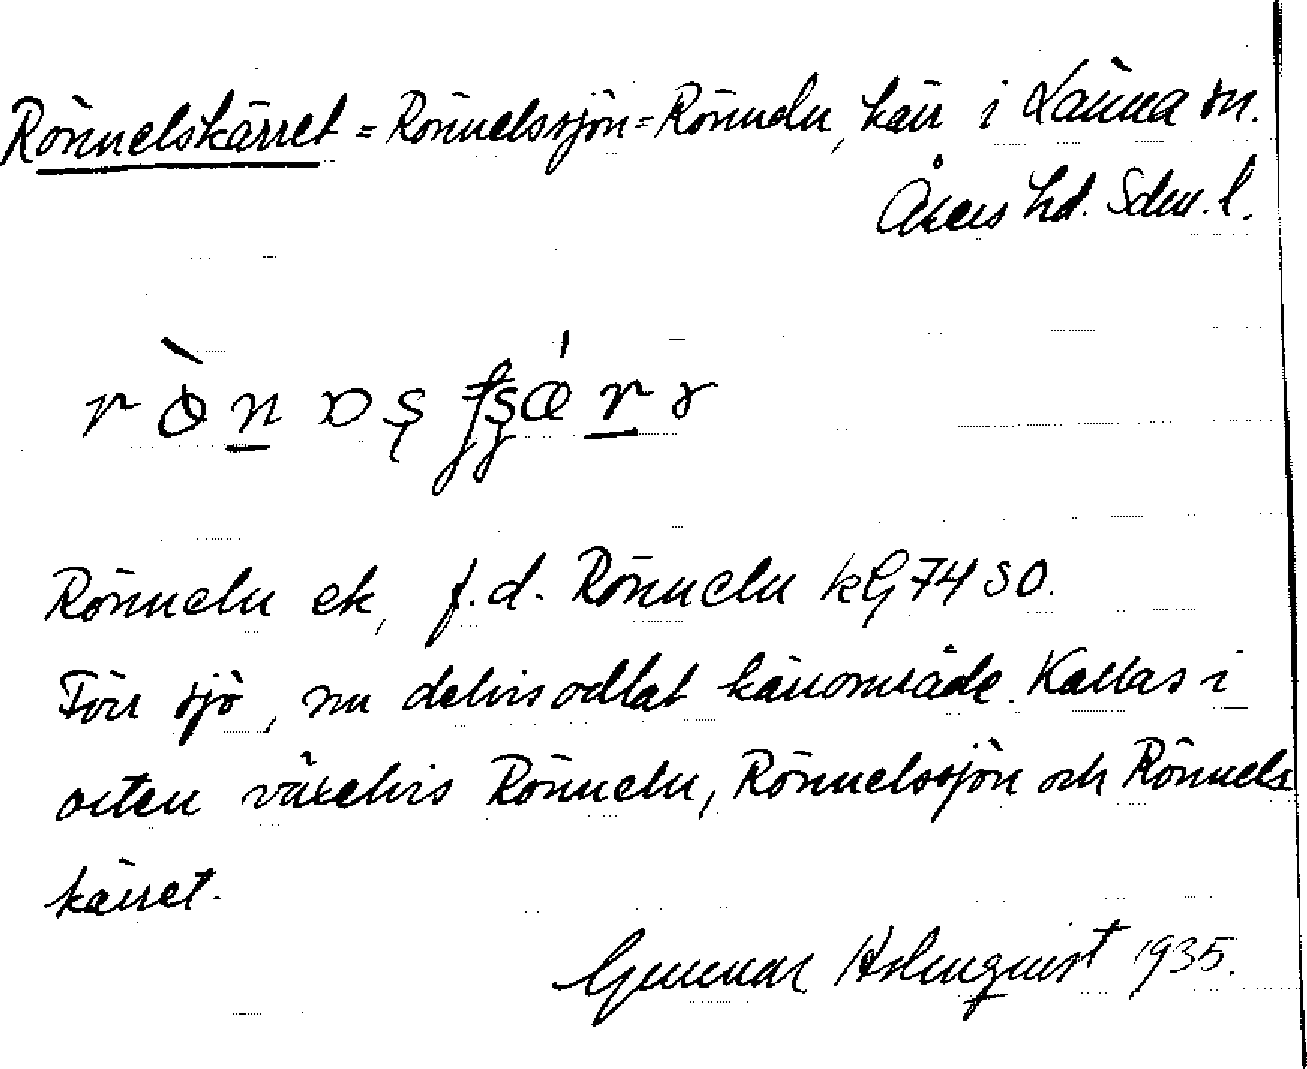 Rönnelskärret = Rönnelssjön = Rönneln, kärr i Länna sn.
Åkers hd. Sdm. l.
Rönneln ek, f.d. Rönneln kG 74 SO.
Förr sjö, nu delvis odlat kärrområde. Kallas i
orten växelvis Rönneln, Rönnelssjön och Rönnels
kärret.
Gunnar Holmquist 1935.